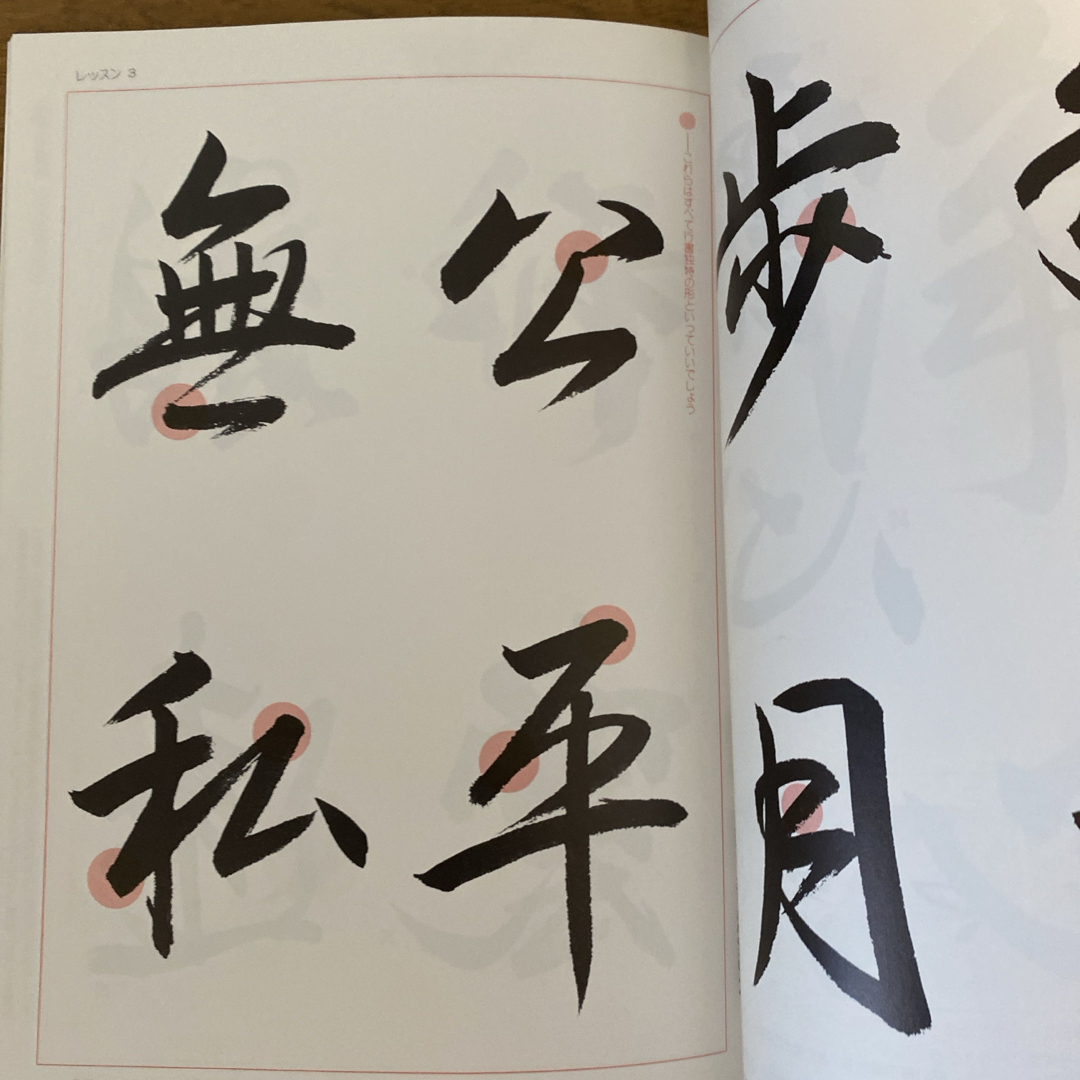 レッスン 3
●——これらはすべて行書独特の形といっていいでしょう
歩月
公平
無私